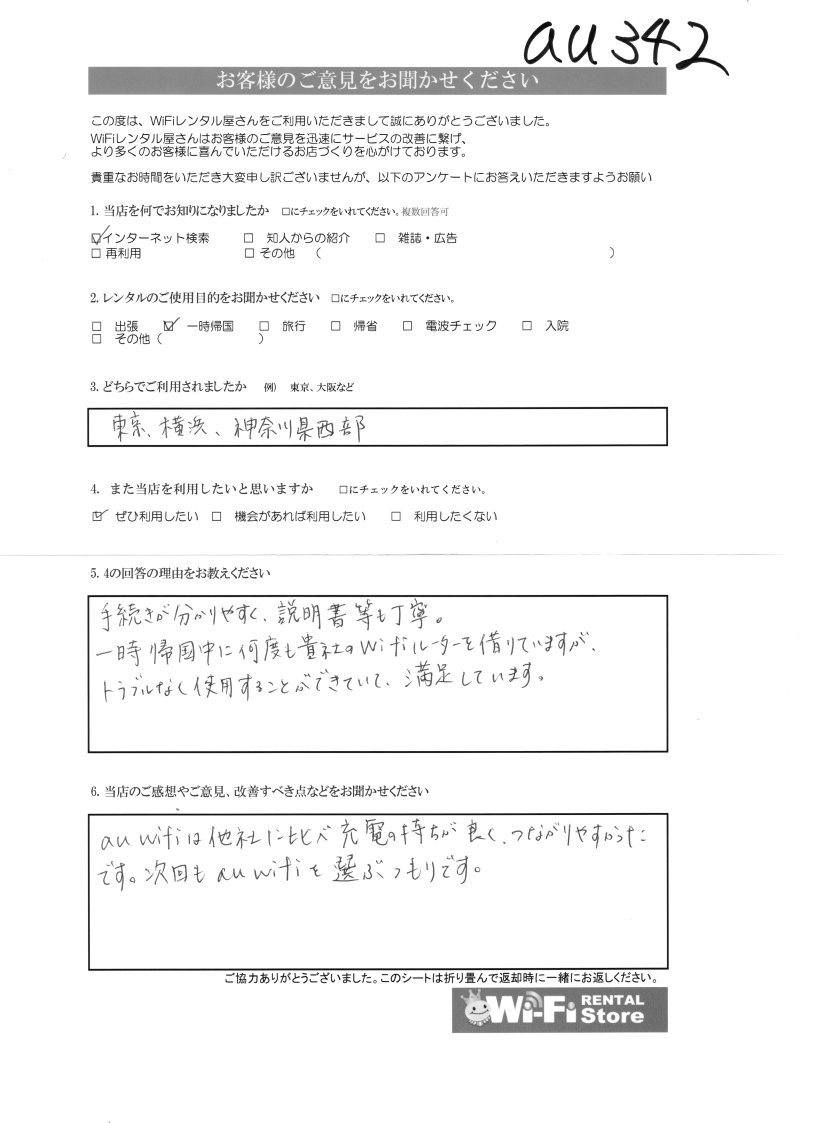 au342
お客様のご意見をお聞かせください
この度は、WiFiレンタル屋さんをご利用いただきまして誠にありがとうございました。
WiFiレンタル屋さんはお客様のご意見を迅速にサービスの改善に繋げ、
より多くのお客様に喜んでいただけるお店づくりを心がけております。
貴重なお時間をいただき大変申し訳ございませんが、以下のアンケートにお答えいただきますようお願い
1. 当店を何でお知りになりましたか □にチェックをいれてください。複数回答可
☑インターネット検索 □ 知人からの紹介 □ 雑誌・広告
□ 再利用 □ その他 ( )
2. レンタルのご使用目的をお聞かせください □にチェックをいれてください。
□ 出張 ☑ 一時帰国 □ 旅行 □ 帰省 □ 電波チェック □ 入院
□ その他 ( )
3. どちらでご利用されましたか 例) 東京、大阪など
東京、横浜、神奈川県西部
4. また当店を利用したいと思いますか □にチェックをいれてください。
☑ ぜひ利用したい □ 機会があれば利用したい □ 利用したくない
5. 4の回答の理由をお教えください
手続きが分かりやすく、説明書等も丁寧。
一時帰国中に何度も貴社のWifiルーターを借りていますが、
トラブルなく使用することができていて、満足しています。
6. 当店のご感想やご意見、改善すべき点などをお聞かせください
au wifiは他社に比べ充電の持ちが良く、つながりやすかった
です。次回もau wifiを選ぶつもりです。
ご協力ありがとうございました。このシートは折り畳んで返却時に一緒にお返しください。
Wi-Fi RENTAL Store